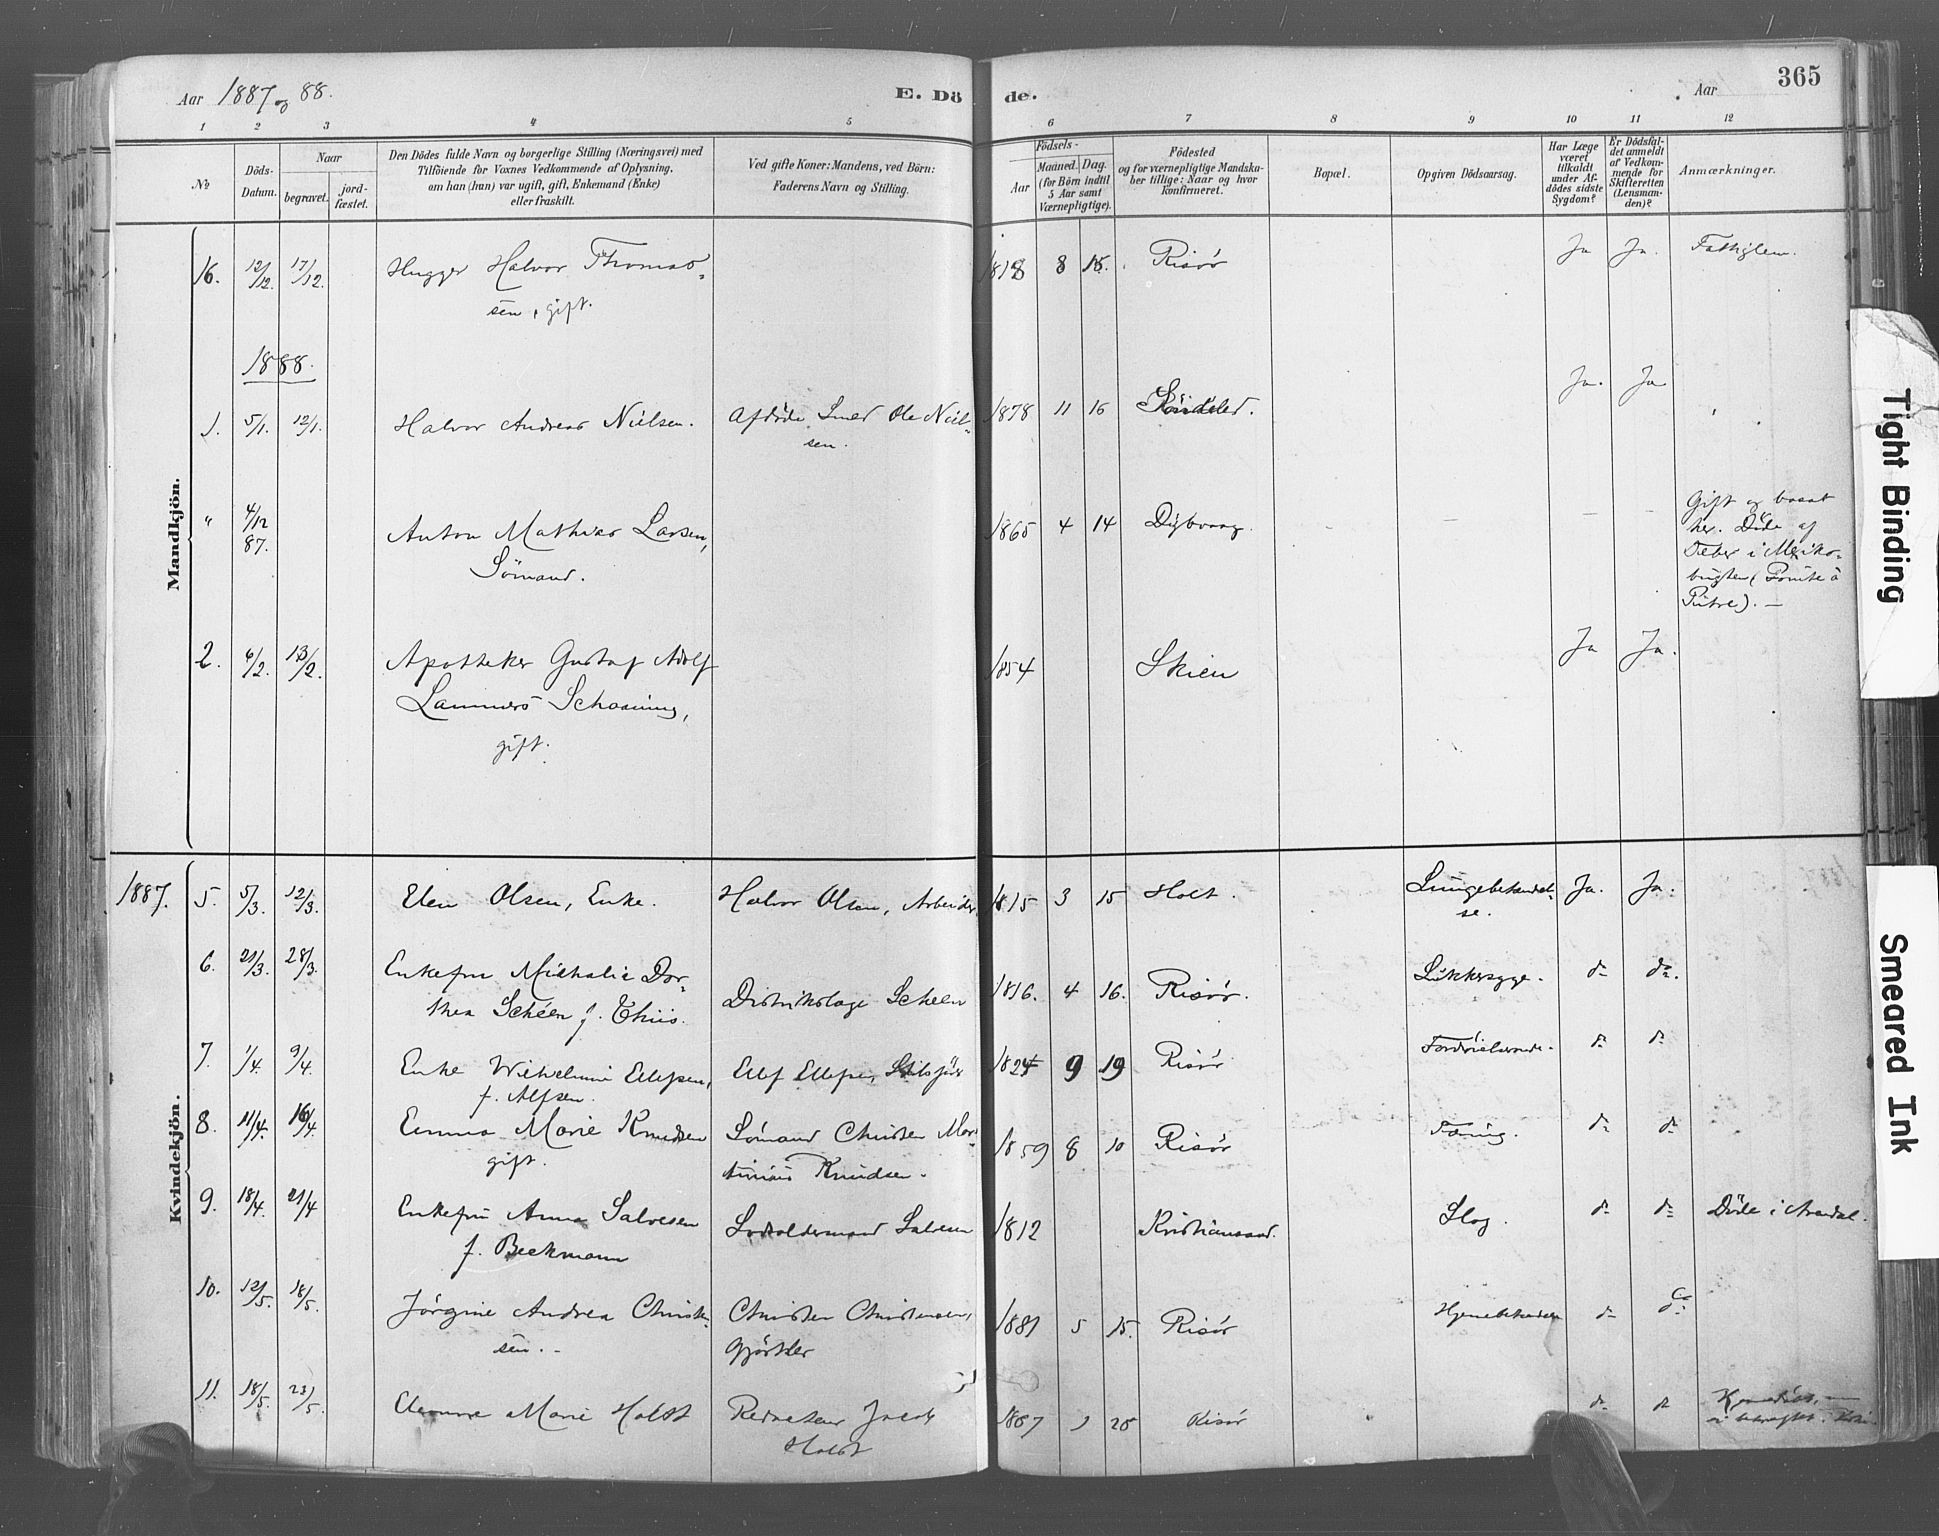 Aar 1887 og 88.
E. Dö de.
Aar
365
1 2 3 4 5 6 7 8 9 10 11 12
No
Döds-
Datum.
Naar
begravet.
jord-
fæstet.
Den Dödes fulde Navn og borgerlige Stilling (Næringsvei) med
Tilföiende for Voxnes Vedkommende af Oplysning,
om han (hun) var ugift, gift, Enkemand (Enke)
eller fraskilt.
Ved gifte Koner: Mandens, ved Börn:
Faderens Navn og Stilling.
Födsels-
Aar
Maaned. Dag.
(for Börn indtil
5 Aar samt
Værnepligtige).
Födested
og for værnepligtige Mandska-
ber tillige: Naar og hvor
konfirmeret.
Bopæl.
Opgiven Dödsaarsag.
Har Læge
været
tilkaldt
under Af-
dödes sidste
Sygdom?
Er Dödsfal-
det anmeldt
af Vedkom-
mende for
Skifteretten
(Lensman-
den)?
Anmærkninger.
Mandkjön.
16. 12/12. 17/12. Hugger Halvor Thomas-
sen, gift.
1818 8 15. Risör Ja Ja. Fattiglem.
1888.
1. 5/1. 12/1. Halvor Andreas Nielsen. Afdöde Smed Ole Niel-
sen.
1878 11 16 Söndeled. Ja. Ja
" 4/12 87. Anton Mathias Larsen,
Sömand.
1865 4 14 Dybvaag. — — —
Gift og bosat
her. Döde af
Feber i Mexiko-
bugten (
2. 6/2. 13/2. Apotheker Gustaf Adolf
Lammers Schaaning,
gift.
1854 Skien Ja Ja.
Kvindekjön.
1887. 5. 5/3. 12/3. Elen Olsen, Enke. Halvor Olsen, Arbeider 1815 3 15 Holt. Lungebetændel-
se. Ja. Ja.
6. 21/3. 28/3. Enkefru Michalie Dor-
thea Scheen f. Thiis. Distriktslæge Scheen 1816. 4 16. Risör. Sukkersyge. do do.
7. 1/4. 9/4. Enke Wilhelmine Ellefsen,
f. Alfsen. Ellef Ellefsen, 1824 9 19 Risör do do
8. 11/4. 16/4. Emma Marie Knudsen
gift. Sömand Christen Mar-
tinius Knudsen. 1859 8 10 Risör Tæring. do do
9. 18/4. 21/4 Enkefru Anna Salvesen
f. Beckmann Lodsoldermand Salvesen 1812 Kristiansand. Slag. do do Döde i Arendal.
10. 12/5. 18/5. Jörgine Andrea Christen-
sen. Christen Christensen,
Gjörtler 1881 5 15. Risör Hjernebetændelse do do
11. 18/5. 23/5. Marie Holst Redacteur Jacob
Holst 1887 28 Risör do do
Tight Binding
Smeared Ink